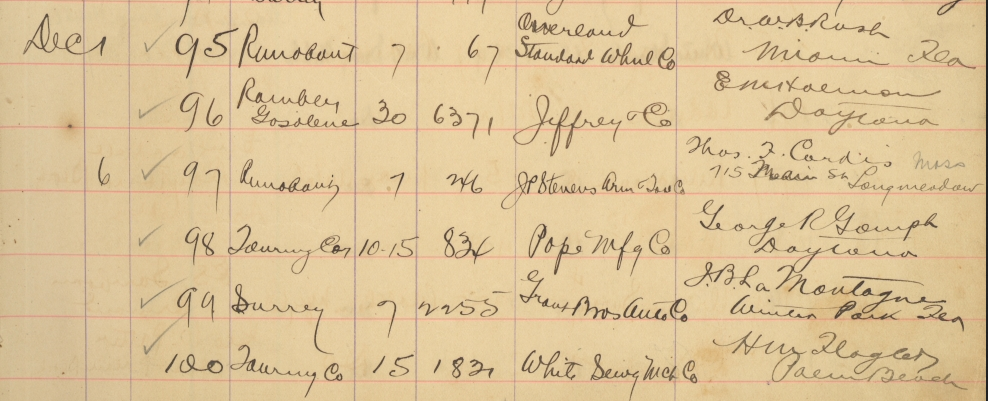 Dec 1 95 Runobout 7 67 Overland Standard Wheel Co Dr W B Rush
Miami Fla
96 Rambler Gasolene 30 6371 Jeffrey & Co E M Harmon
Daytona
6 97 Runobout 7 246 J P Stevens Arm & Tool Co Thos. F. Cordis Mass
715 Main St Longmeadow
98 Touring Car 10-15 834 Pope Mfg Co George R Gamph
Daytona
99 Surrey 7 2255 Grant Bros Auto Co J. B. La Montagne
Winter Park Fla
100 Touring Co 15 1831 White Sewg Mch Co H M Flagler
Palm Beach